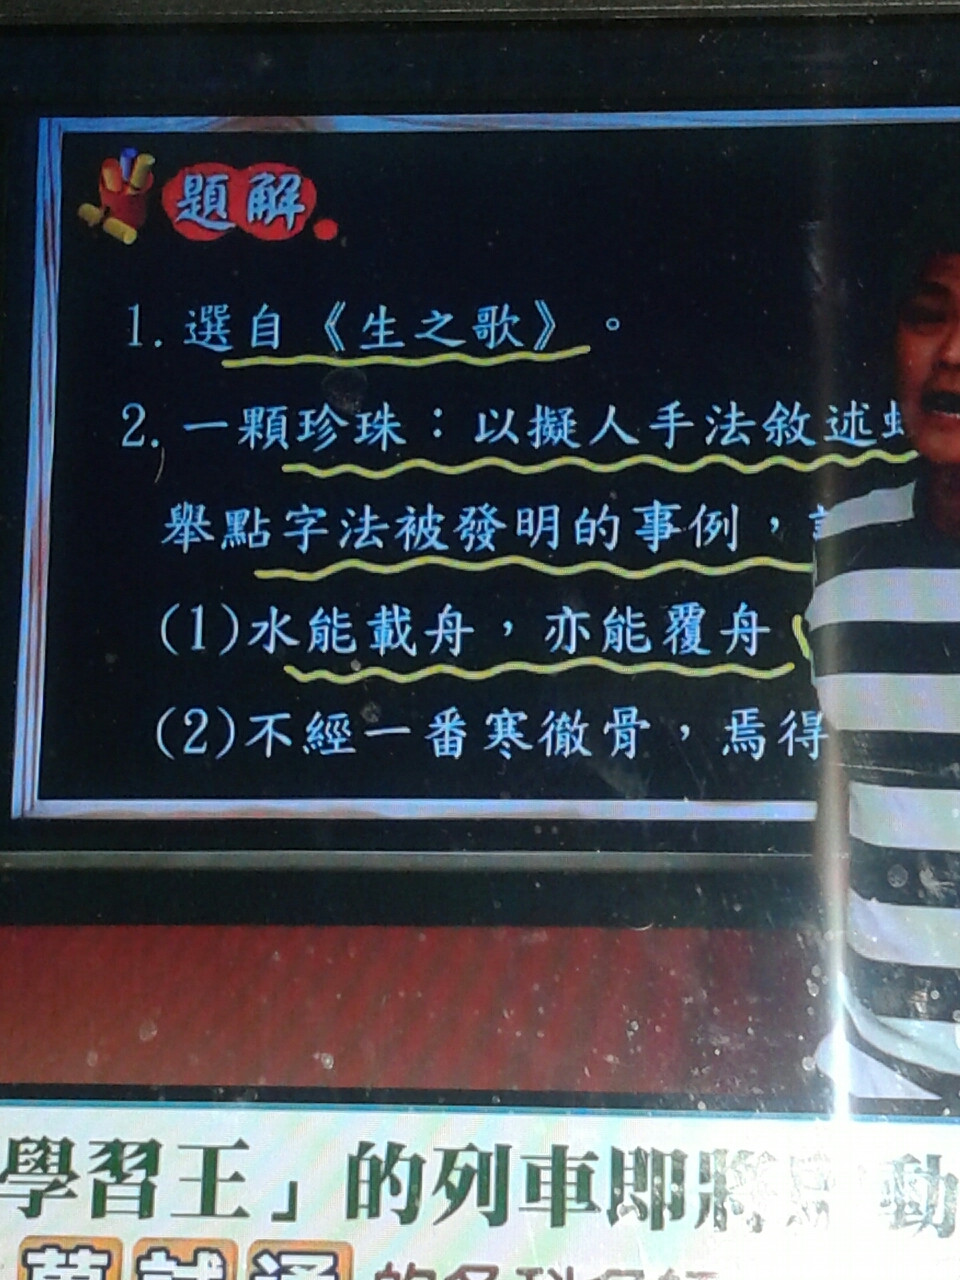 題解
1. 選自《生之歌》。
2. 一顆珍珠：以擬人手法敘述
舉點字法被發明的事例，
(1)水能載舟，亦能覆舟
(2)不經一番寒徹骨，焉得
學習王」的列車即將 動
萬試通